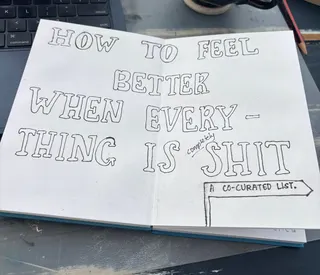 HOW TO FEEL
BETTER
WHEN EVERY-
THING IS completely SHIT
A CO-CURATED LIST.